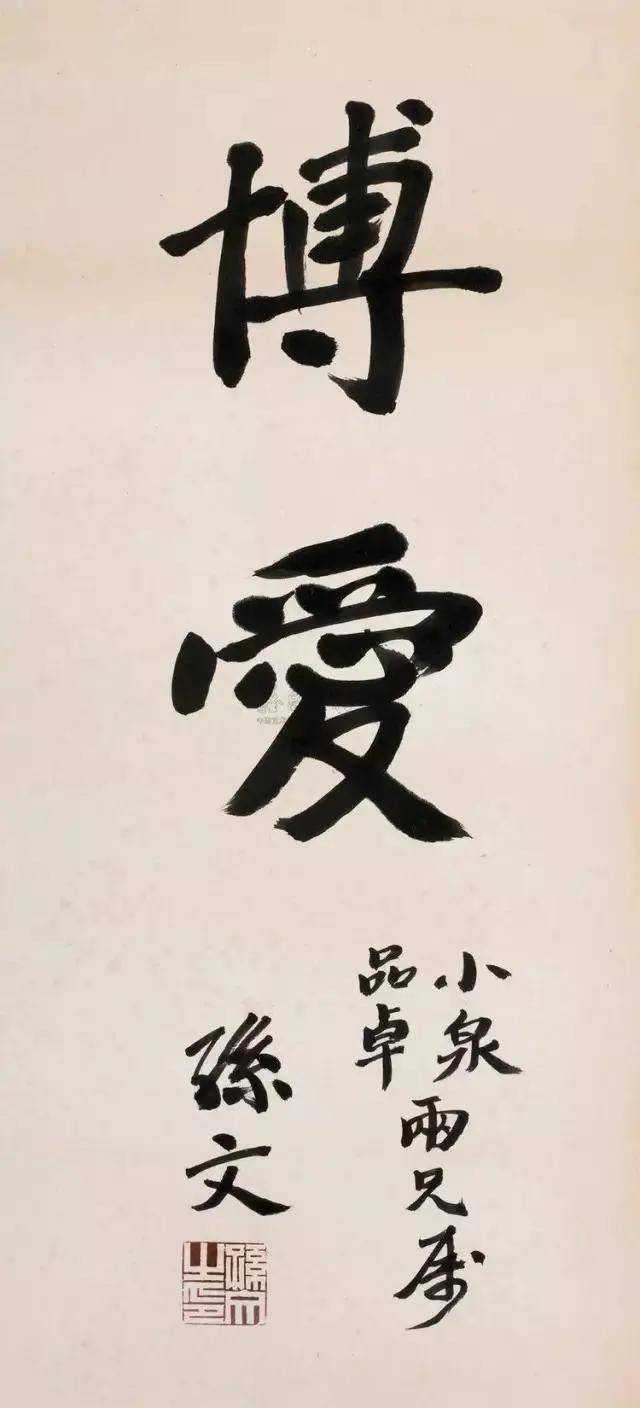 博愛
小泉
品卓
兩兄属
孫文
孫文之印